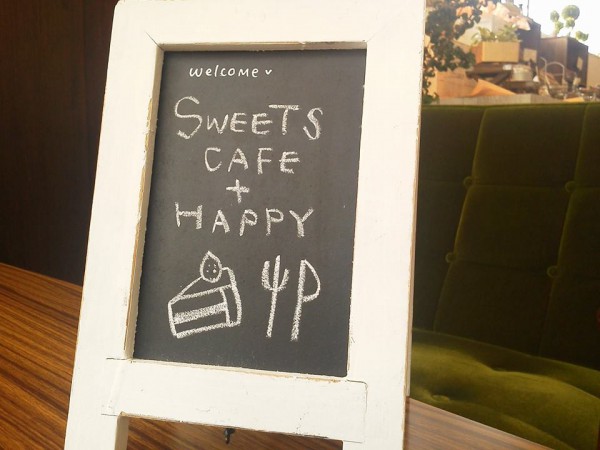 welcome ♥
SWEETS
CAFE
+
HAPPY